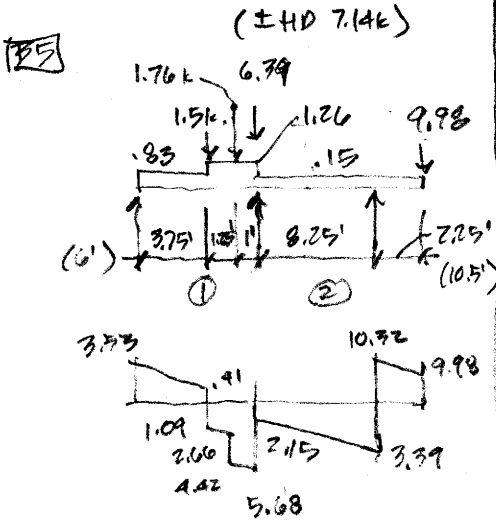 (± HD 7.14k)
B5
1.76k 6.39
1.5k 1.26 9.98
.83 .15
(6') 3.75' 1.25' 1' 8.25' 2.25'
(10.5')
① ②
3.53 .41 10.32 9.98
1.09 2.66 2.15 3.39
4.42
5.68